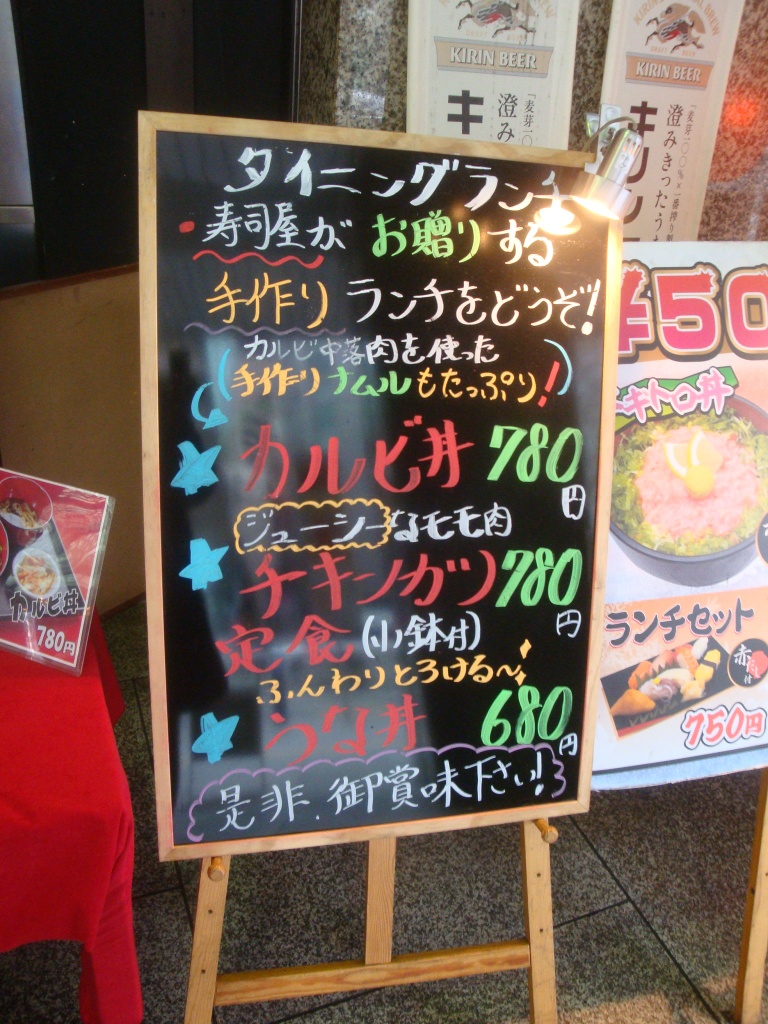 タイニングランチ
寿司屋が お贈りする
手作り ランチをどうぞ!
(カルビ中落肉を使った
手作りナムルもたっぷり!)
カルビ丼 780円
ジューシーなモモ肉
チキンカツ 780円
定食(小鉢付)
ふんわりとろける~
うな丼 680円
是非、御賞味下さい!
KIRIN BEER
キ
澄み
「麦芽100
KIRIN BEER
キリン
澄みきったうま
「麦芽一〇〇%×一番搾り
カルビ丼
780円
¥50
キトロ丼
ランチセット
赤だし付
750円